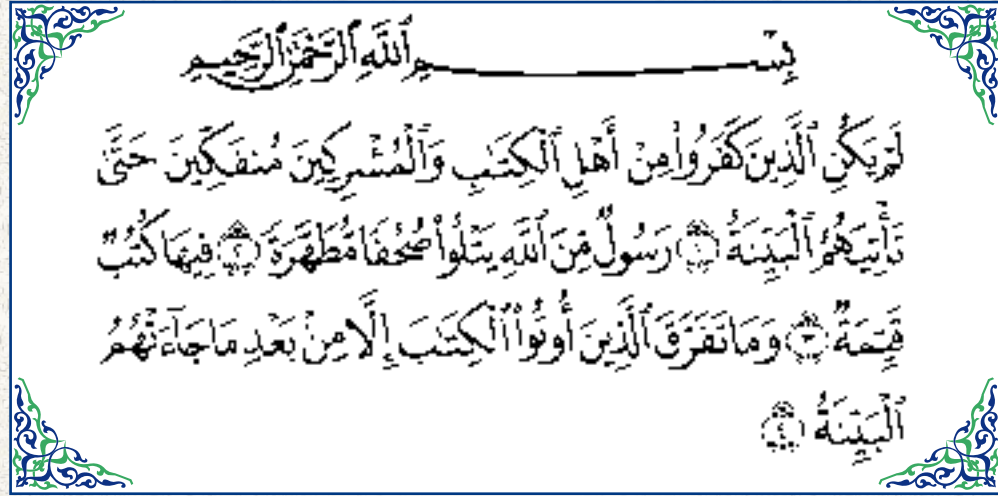 بِسْمِ ٱللَّهِ ٱلرَّحْمَٰنِ ٱلرَّحِيمِ
لَمْ يَكُنِ ٱلَّذِينَ كَفَرُوا۟ مِنْ أَهْلِ ٱلْكِتَٰبِ وَٱلْمُشْرِكِينَ مُنفَكِّينَ حَتَّىٰ
تَأْتِيَهُمُ ٱلْبَيِّنَةُ ١ رَسُولٌ مِّنَ ٱللَّهِ يَتْلُوا۟ صُحُفًا مُّطَهَّرَةً ٢ فِيهَا كُتُبٌ
قَيِّمَةٌ ٣ وَمَا تَفَرَّقَ ٱلَّذِينَ أُوتُوا۟ ٱلْكِتَٰبَ إِلَّا مِنۢ بَعْدِ مَا جَآءَتْهُمُ
ٱلْبَيِّنَةُ ٤